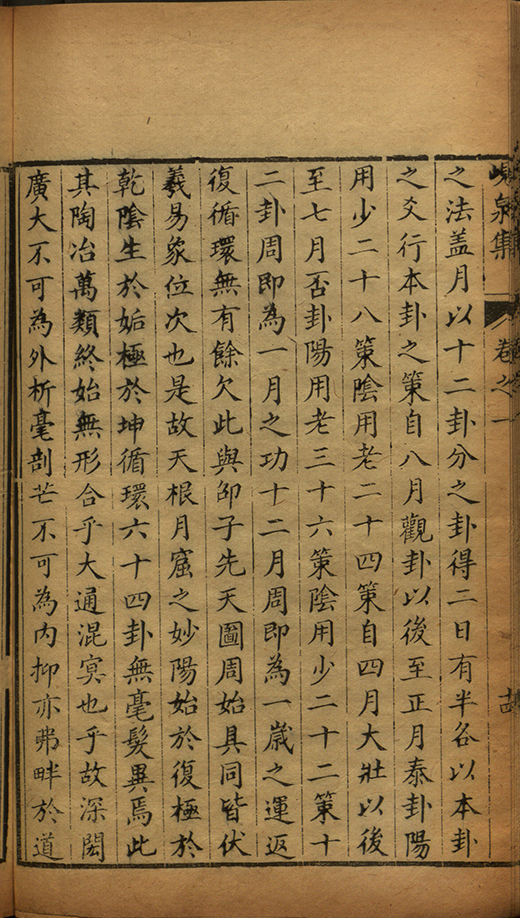 峴泉集
卷之一
之法盖月以十二卦分之卦得二日有半各以本卦
之爻行本卦之策自八月觀卦以後至正月泰卦陽
用少二十八策陰用老二十四策自四月大壯以後
至七月否卦陽用老三十六策陰用少二十二策十
二卦周即為一月之功十二月周即為一歲之運返
復循環無有餘欠此與邵子先天圖周始具同皆伏
羲易象位次也是故天根月窟之妙陽始於復極於
乾陰生於姤極於坤循環六十四卦無毫髮異焉此
其陶冶萬類終始無形合乎大通混冥也乎故深閎
廣大不可為外析毫剖芒不可為內抑亦弗畔於道